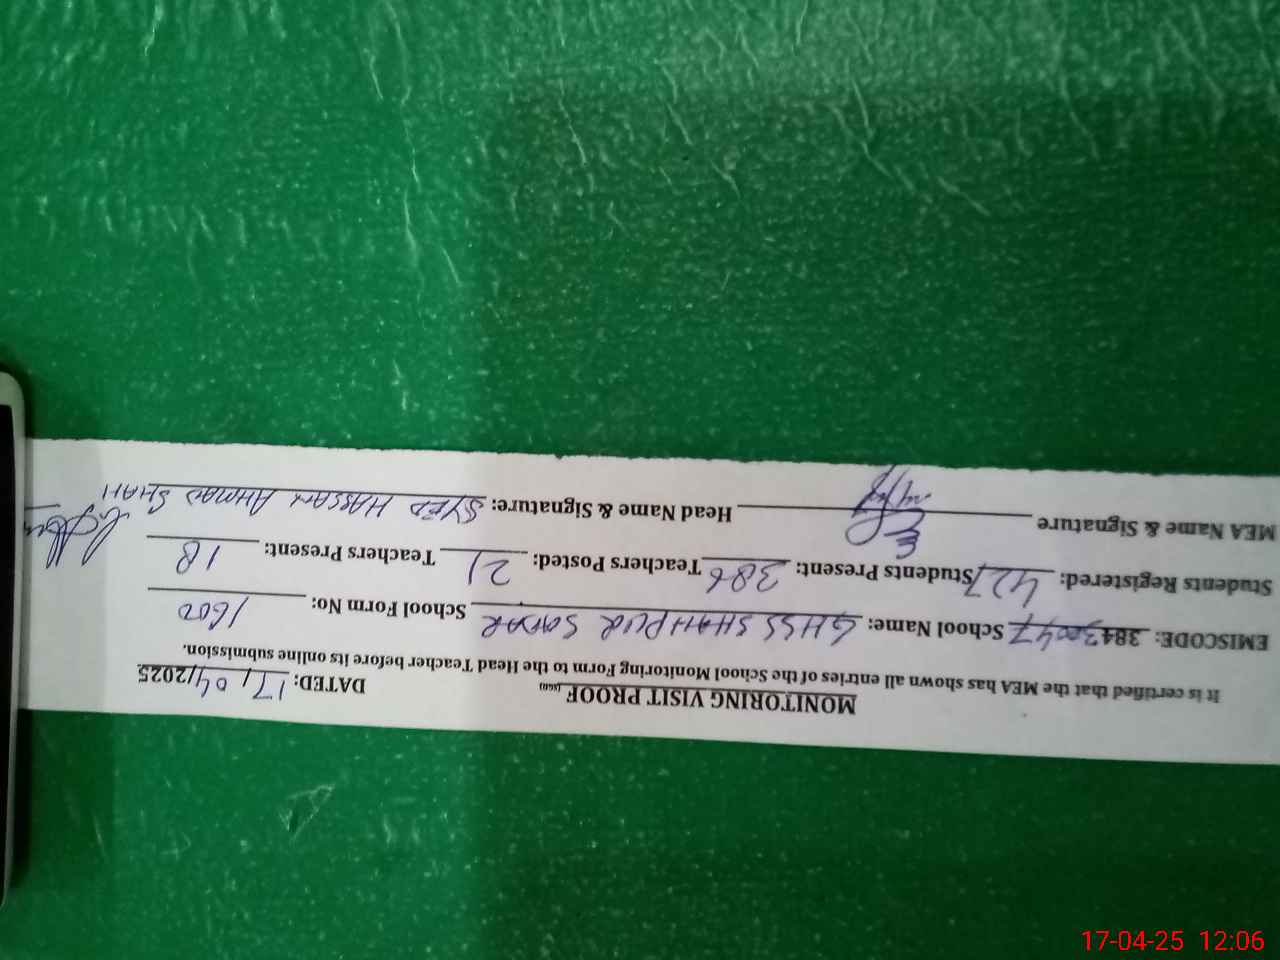 MONITORING VISIT PROOF
DATED: 17/04/2025
It is certified that the MEA has shown all entries of the School Monitoring Form to the Head Teacher before its online submission.
EMISCODE: 38430047 School Name: GHSS SHAHPUR SADAR School Form No: 1600
Students Registered: 427 Students Present: 386 Teachers Posted: 21 Teachers Present: 18
MEA Name & Signature Head Name & Signature: SYED HASSAN AHMAD SHAH
17-04-25 12:06